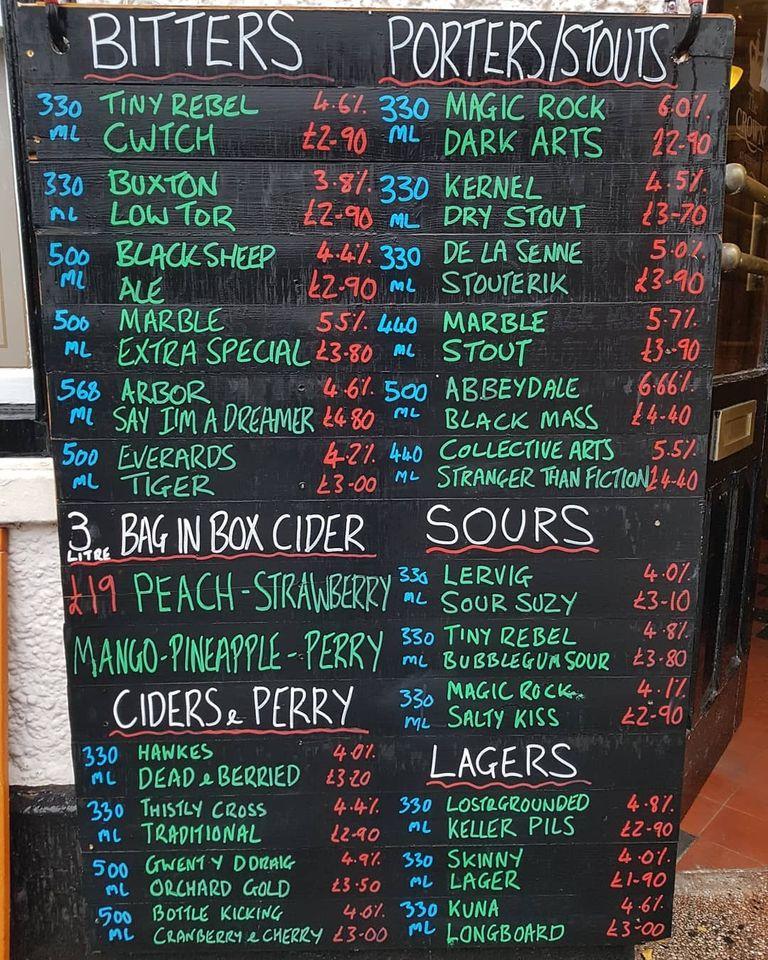 BITTERS
330 ML TINY REBEL 4.6%
CWTCH £2-90
330 ML BUXTON 3.8%
LOW TOR £2-90
500 ML BLACK SHEEP 4.4%
ALE £2-90
500 ML MARBLE 5.5%
EXTRA SPECIAL £3-80
568 ML ARBOR 4.6%
SAY I'M A DREAMER £4-80
500 ML EVERARDS 4.2%
TIGER £3-00
3 LITRE BAG IN BOX CIDER
£19 PEACH - STRAWBERRY
MANGO-PINEAPPLE - PERRY
CIDERS & PERRY
330 ML HAWKES 4.0%
DEAD & BERRIED £3-20
330 ML THISTLY CROSS 4.4%
TRADITIONAL £2-90
500 ML GWENT Y DDRAIG 4.9%
ORCHARD GOLD £3-50
500 ML BOTTLE KICKING 4.0%
CRANBERRY & CHERRY £3-00
PORTERS/STOUTS
330 ML MAGIC ROCK 6.0%
DARK ARTS £2-90
330 ML KERNEL 4.5%
DRY STOUT £3-70
330 ML DE LA SENNE 5.0%
STOUTERIK £3-90
440 ML MARBLE 5.7%
STOUT £3-90
500 ML ABBEYDALE 6.66%
BLACK MASS £4-40
440 ML COLLECTIVE ARTS 5.5%
STRANGER THAN FICTION £4-40
SOURS
330 ML LERVIG 4.0%
SOUR SUZY £3-10
330 ML TINY REBEL 4.8%
BUBBLEGUM SOUR £3-80
330 ML MAGIC ROCK 4.1%
SALTY KISS £2-90
LAGERS
330 ML LOST&GROUNDED 4.8%
KELLER PILS £2-90
330 ML SKINNY 4.0%
LAGER £1-90
330 ML KUNA 4.6%
LONGBOARD £3-00
CROWN